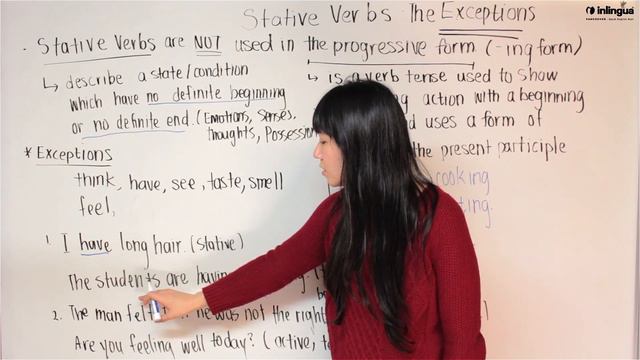 Stative Verbs The Exceptions
inlingua
. Stative Verbs are NOT used in the progressive form (-ing form)
↳ describe a state/condition
which have no definite beginning
or no definite end. (Emotions, Senses,
thoughts, Possession
↳ is a verb tense used to show
action with a beginning
uses a form of
the present participle
cooking
* Exceptions
think, have, see, taste, smell
feel,
1. I have long hair. (Stative)
The students are
2. The man felt he was not the right
Are you feeling well today? (active,